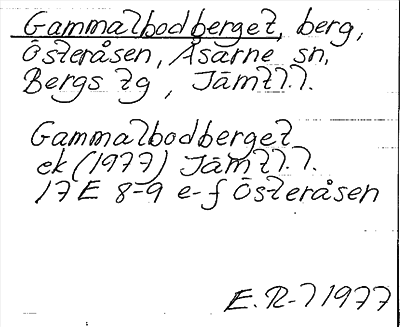 Gammalbodberget, berg,
Österåsen, Åsarne sn,
Bergs tg, Jämtl.l.
Gammalbodberget
ek (1977) Jämtl.l.
17 E 8-9 e-f Österåsen
E.R-l 1977